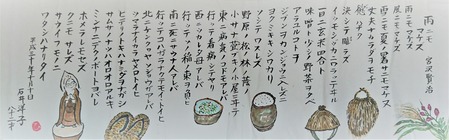 雨ニモマケズ
宮沢賢治
雨ニモマケズ
風ニモマケズ
雪ニモ夏ノ暑サニモマケヌ
丈夫ナカラダヲモチ
慾ハナク
決シテ瞋ラズ
イツモシヅカニワラッテヰル
一日ニ玄米四合ト
味噌ト少シノ野菜ヲタベ
アラユルコトヲ
ジブンヲカンジョウニ入レズニ
ヨクミキキシワカリ
ソシテワスレズ
野原ノ松ノ林ノ蔭ノ
小サナ萓ブキノ小屋ニヰテ
東ニ病気ノコドモアレバ
行ッテ看病シテヤリ
西ニツカレタ母アレバ
行ッテソノ稲ノ束ヲ負ヒ
南ニ死ニサウナ人アレバ
行ッテコハガラナクテモイヽトイヒ
北ニケンクヮヤソショウガアレバ
ツマラナイカラヤメロトイヒ
ヒデリノトキハナミダヲナガシ
サムサノナツハオロオロアルキ
ミンナニデクノボートヨバレ
ホメラレモセズ
クニモサレズ
サウイフモノニ
ワタシハナリタイ
石井洋子